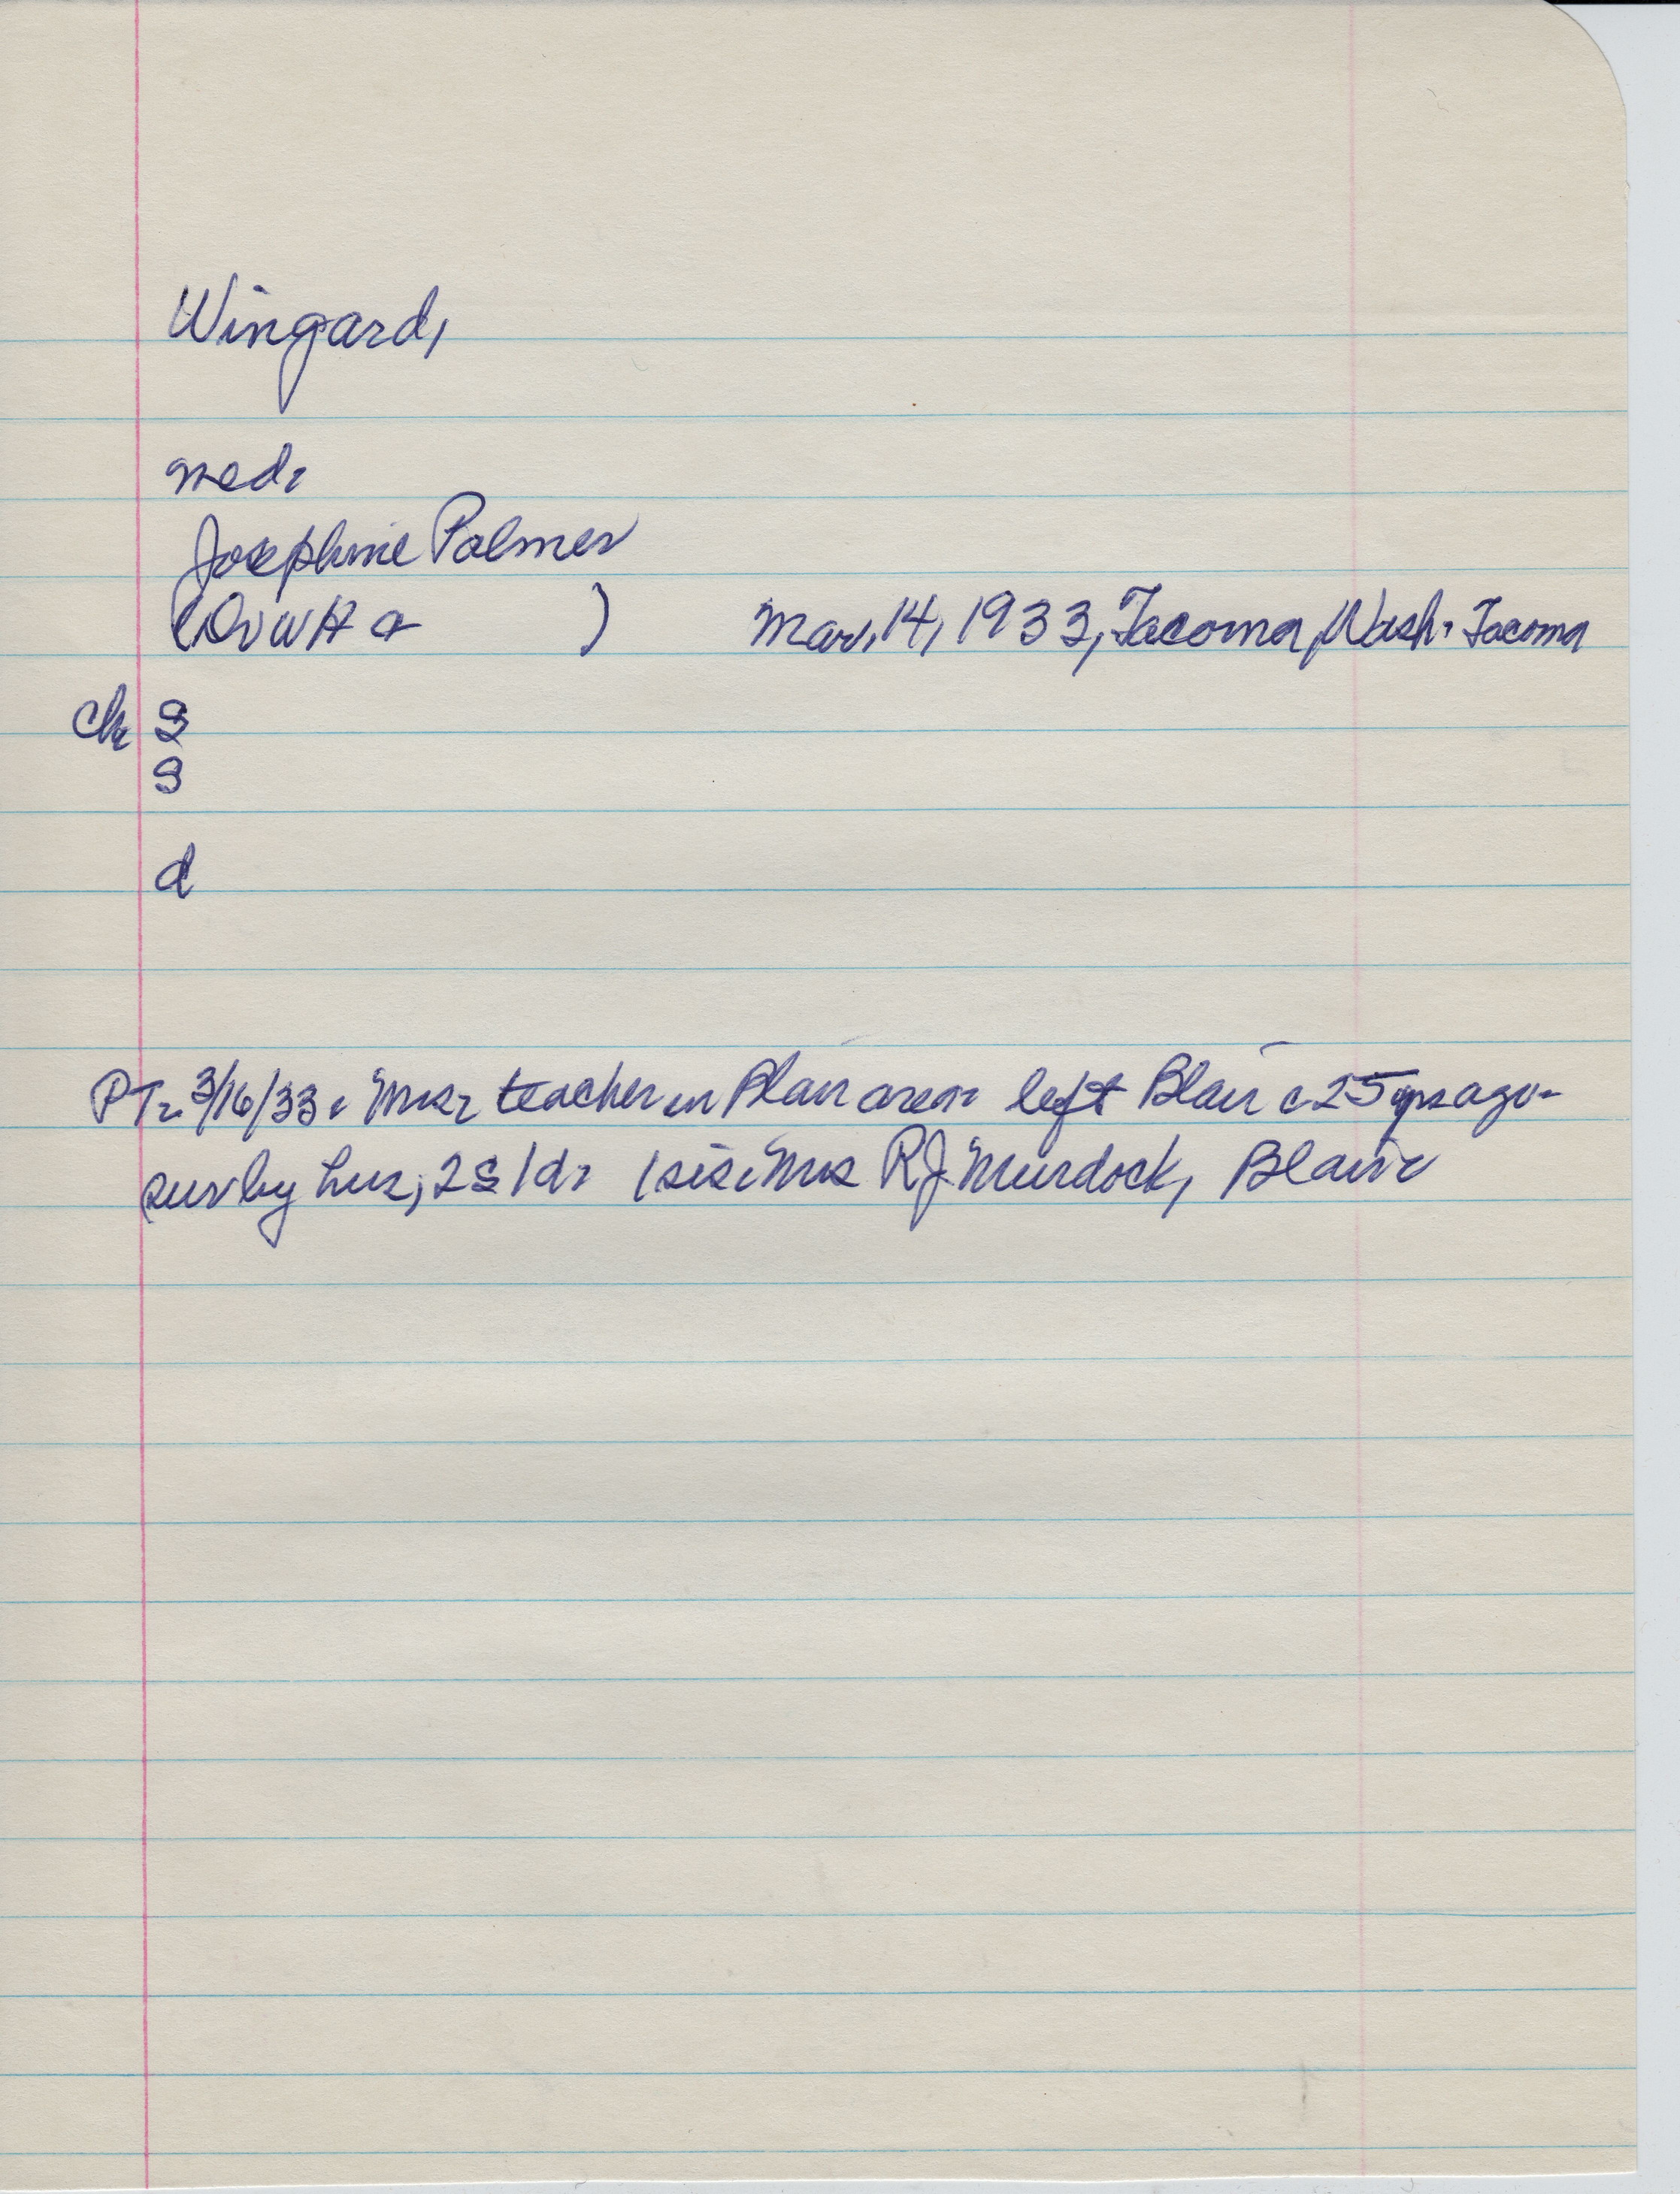 Wingard,
med.
Josephine Palmer
( ) Mar. 14, 1933, Tacoma, Wash. Tacoma
Ch S
S
d
PT. 3/16/33. Mrs. teacher in Blair area. left Blair c 25 yrs ago.
sur by hus, 2s 1d. 1 sis. Mrs RJ Murdock, Blair